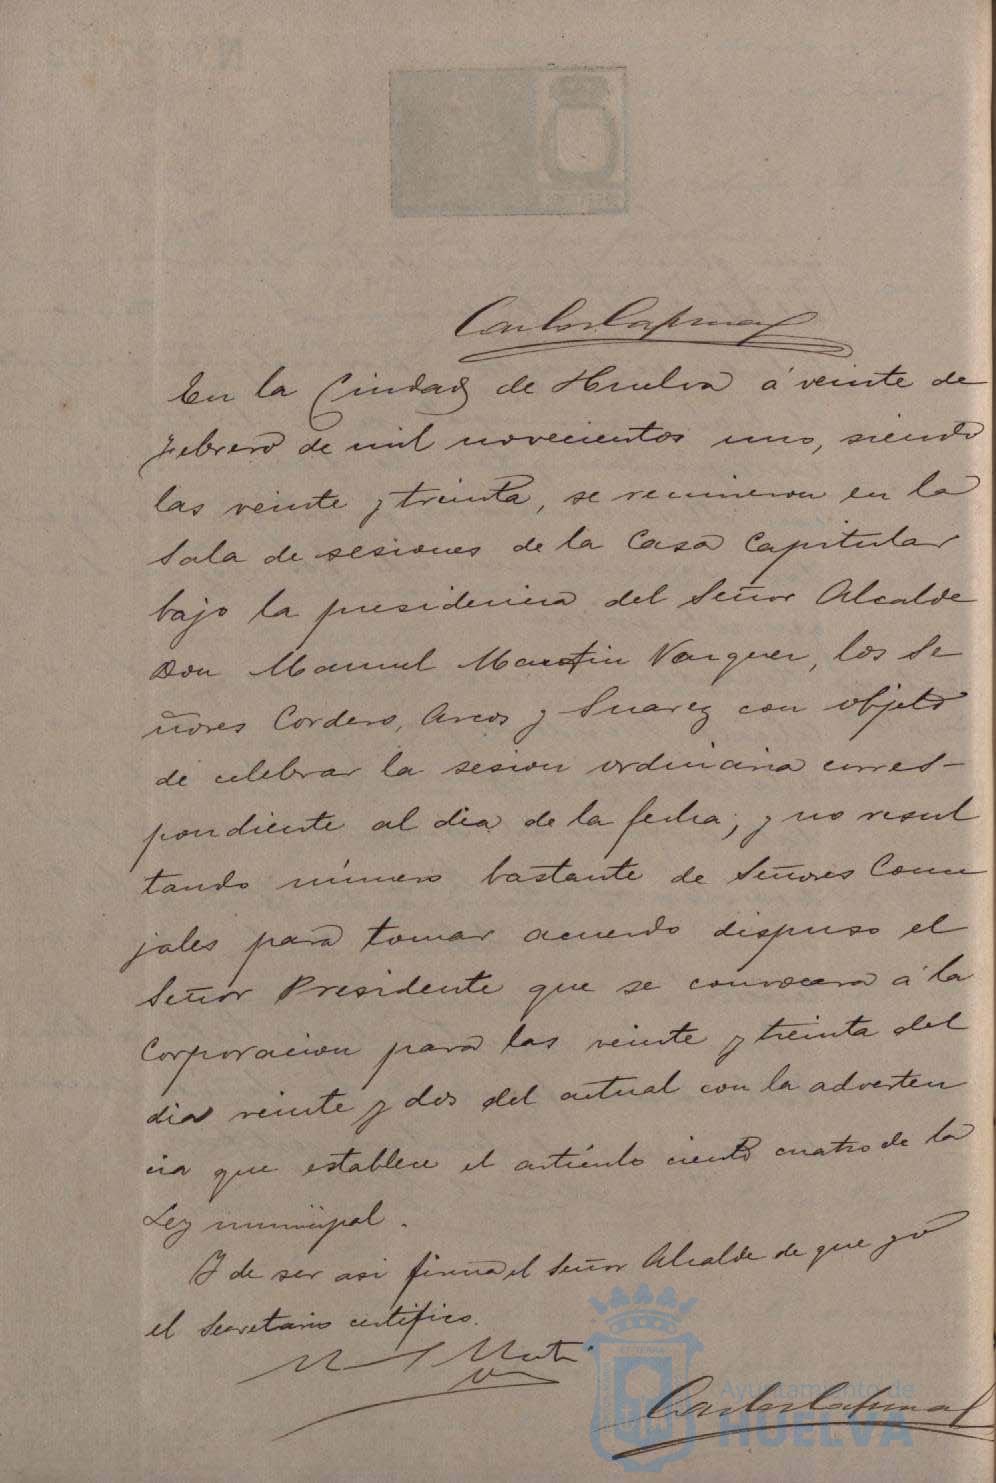 Carlos
En la Ciudad de Huelva á veinte de
Febrero de mil novecientos uno, siendo
las veinte y treinta, se reunieron en la
Sala de sesiones de la Casa Capitular
bajo la presidencia del Señor Alcalde
Don Manuel Martin Vazquez, los Se
ñores Cordero, Arcos y Suarez con objeto
de celebrar la sesion ordinaria corres-
pondiente al dia de la fecha; y no resul
tando número bastante de Señores Conce
jales para tomar acuerdo dispuso el
Señor Presidente que se convocara á la
Corporacion para las veinte y treinta del
dia veinte y dos del actual con la adverten
cia que establece el artículo ciento cuatro de la
Ley municipal.
Y de ser asi firma el Señor Alcalde de que yo
el Secretario certifico.
Carlos
Ayuntamiento de
HUELVA